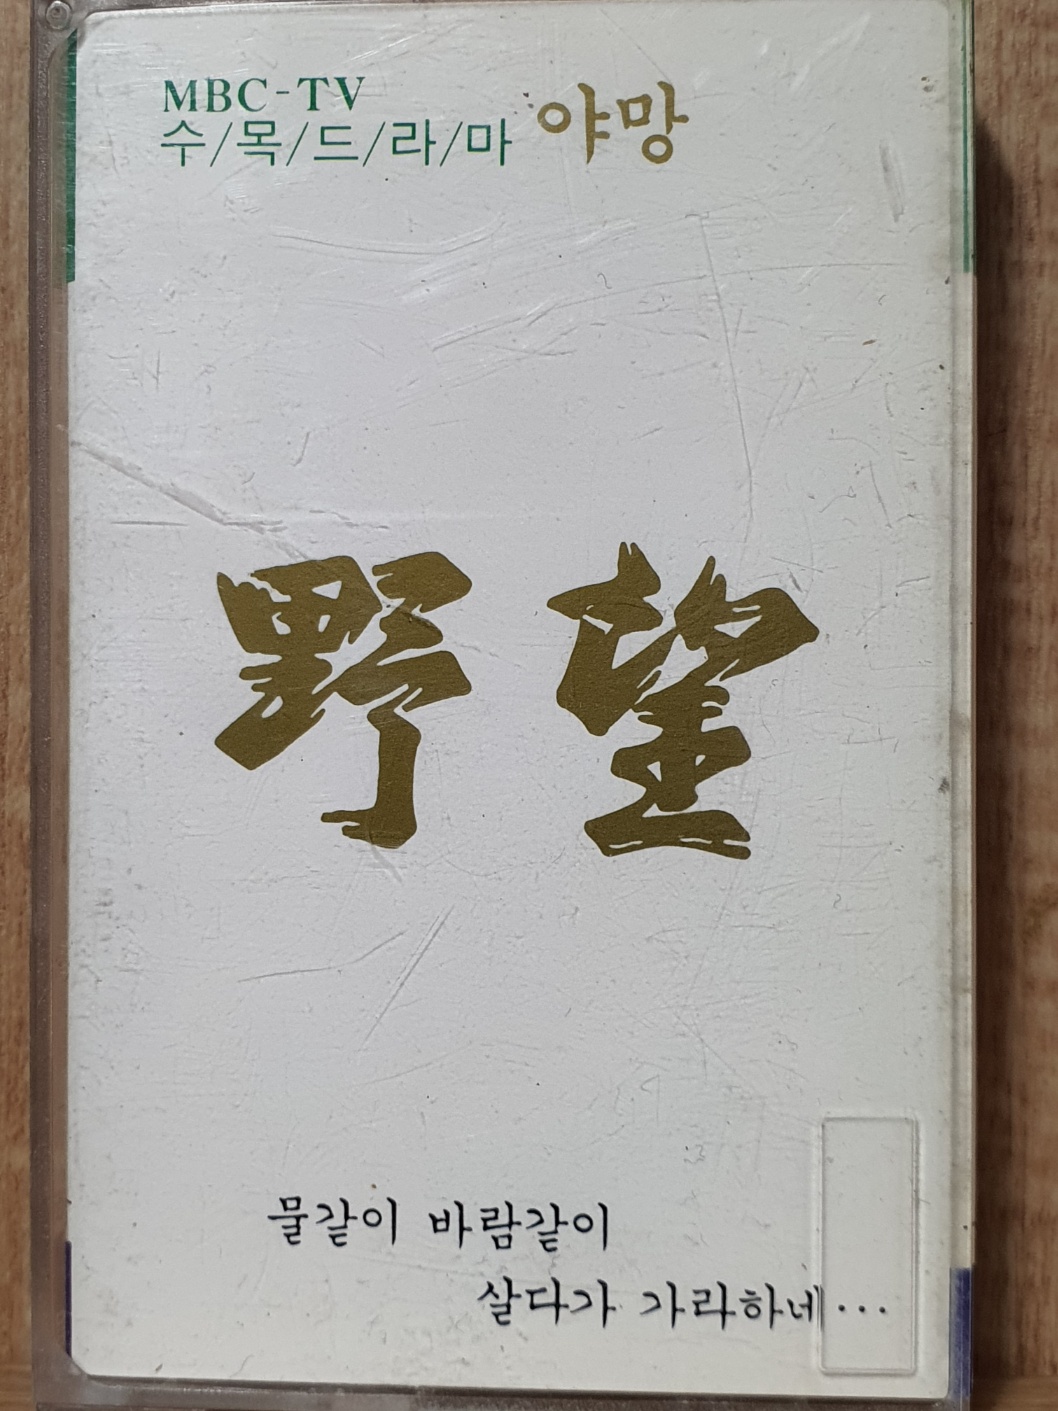 MBC-TV
수/목/드/라/마 야망
野望
물같이 바람같이
살다가 가라하네...